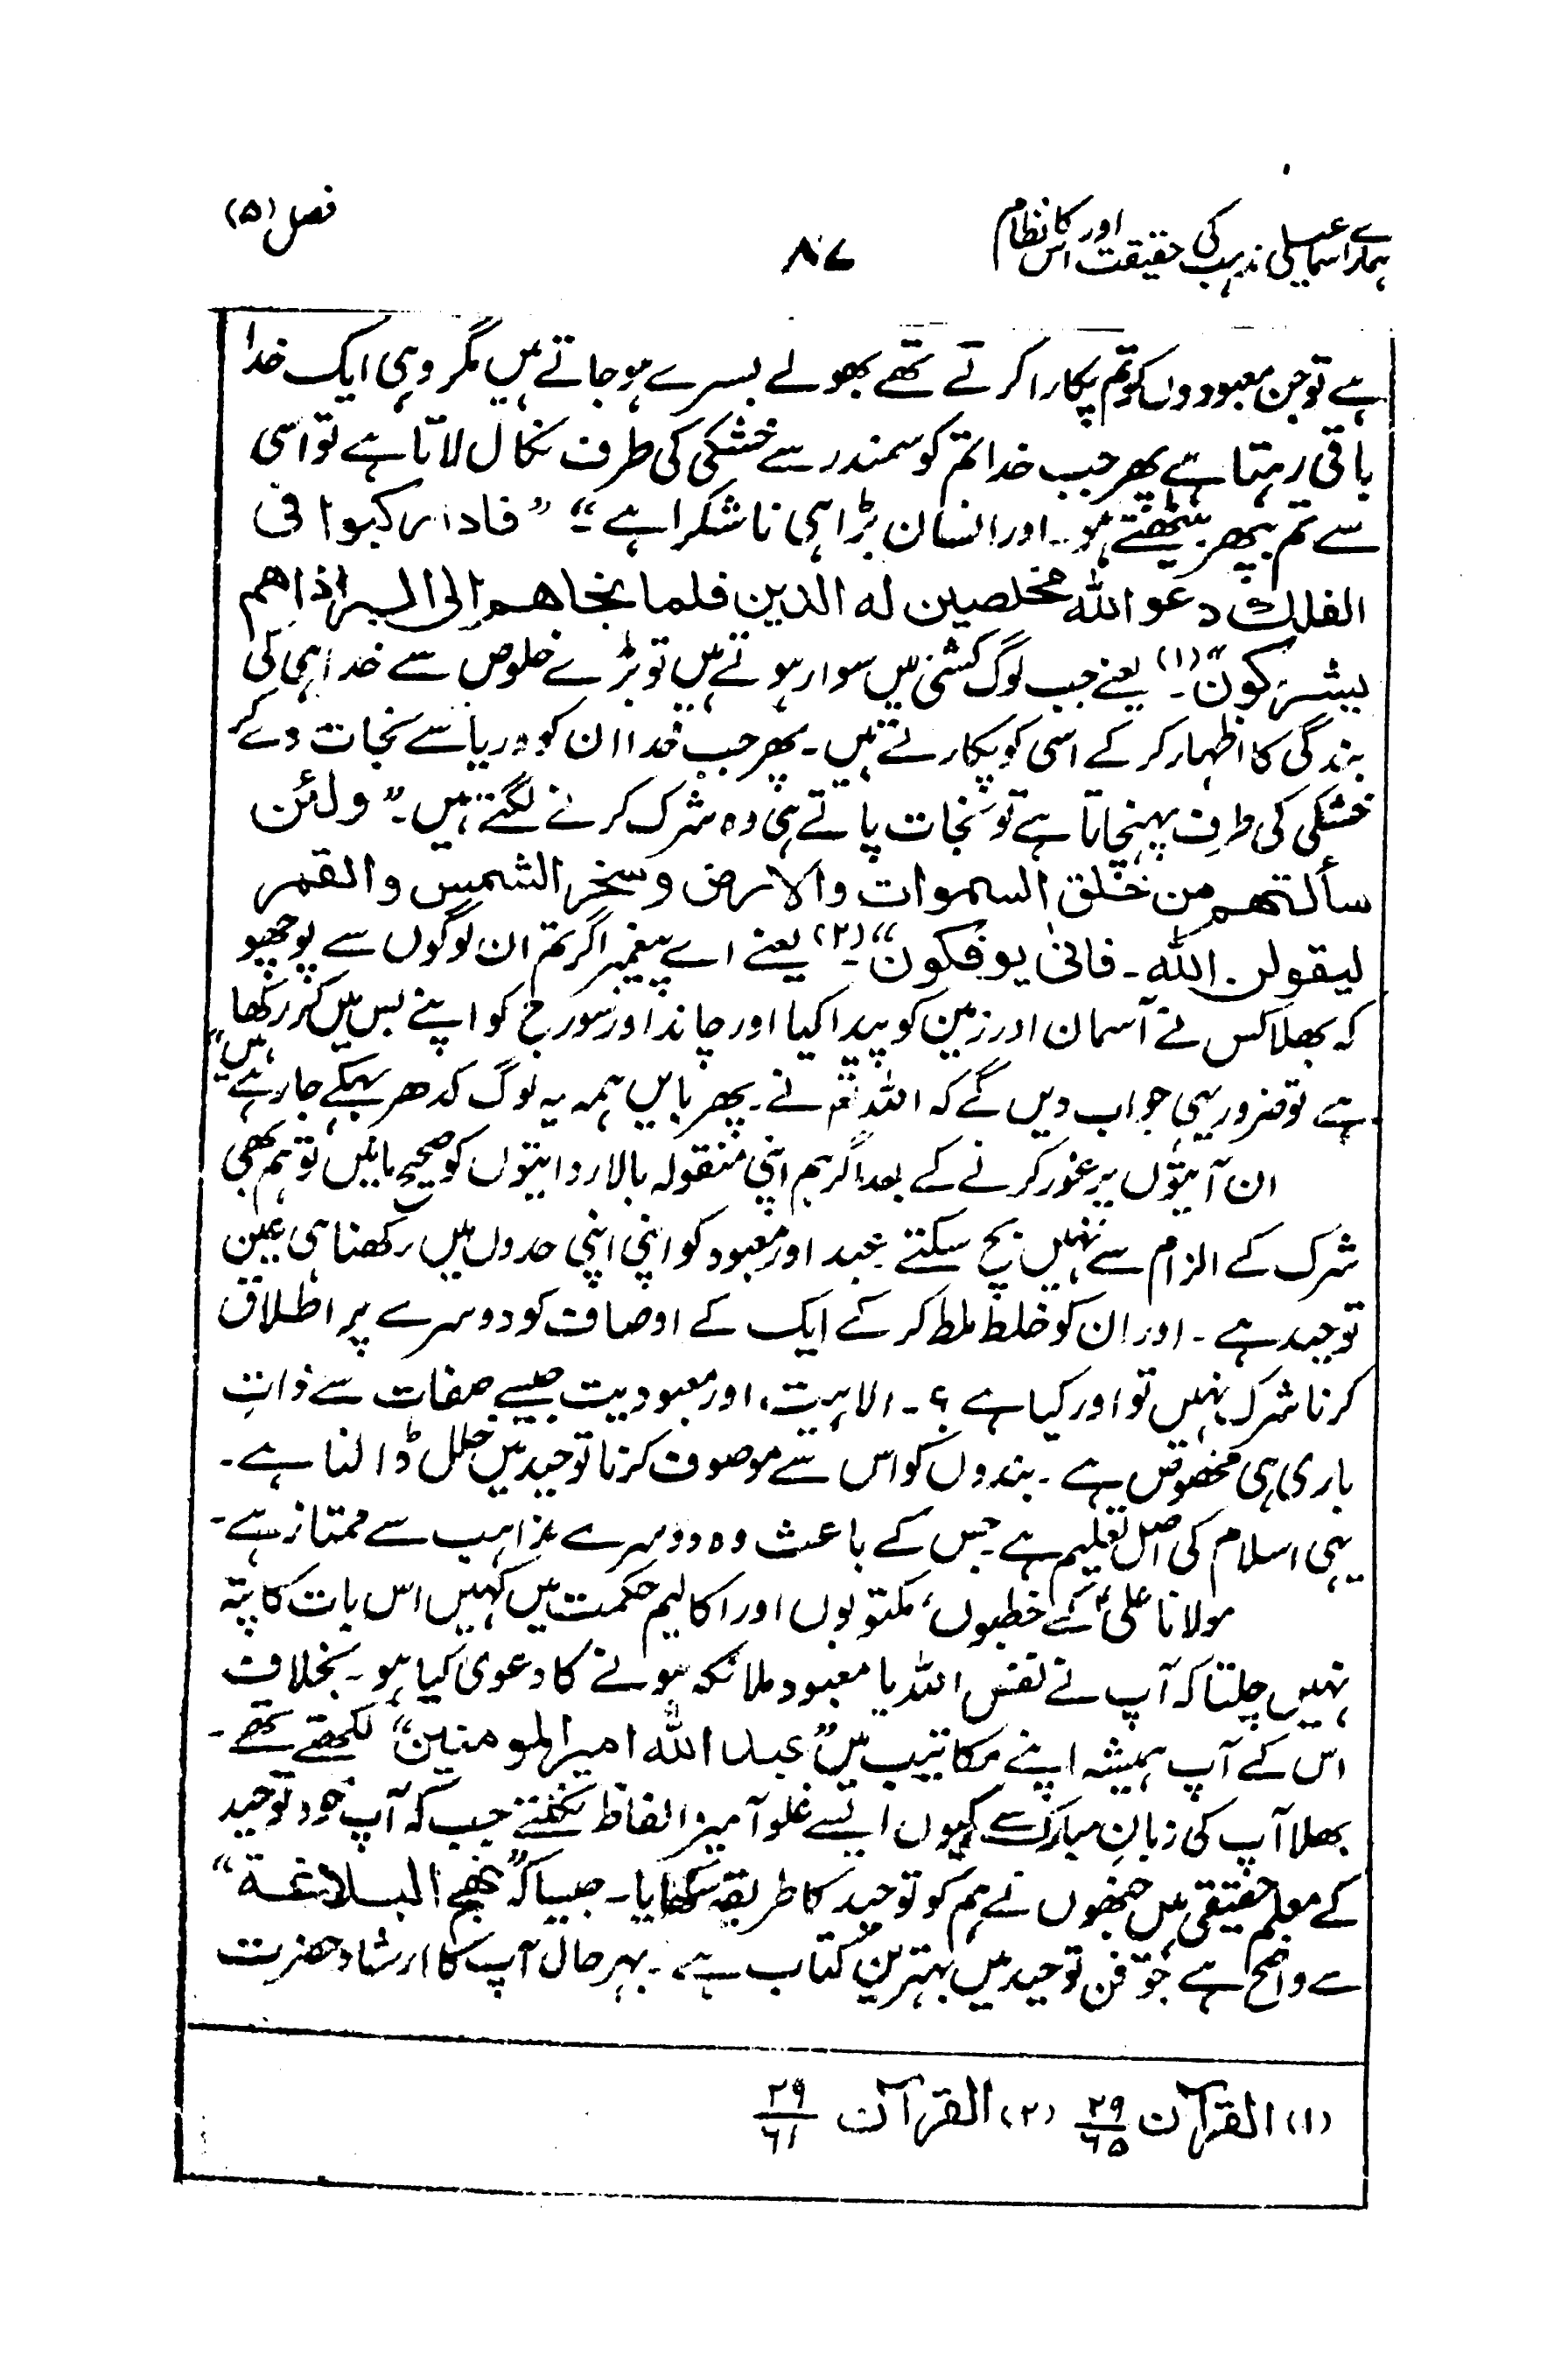 ہمارے اسماعیلی مذہب کی حقیقت اور اس کا نظام
۸۷
فصل (۵)
ہے تو جن معبودوں کو تم پکارا کرتے تھے بھولے بسرے ہو جاتے ہیں مگر وہی ایک خدا
باقی رہتا ہے پھر جب خدا تم کو سمندر سے خشکی کی طرف نکال لاتا ہے تو اسی
سے تم پھر بیٹھتے ہو۔ اور انسان بڑا ہی ناشکرا ہے"۔ "فاذا رکبوا فی
الفلك دعوا الله مخلصين له الدين فلما نجاهم الى البر اذا هم
يشركون"۔(۱) یعنے جب لوگ کشتی میں سوار ہوتے ہیں تو بڑے خلوص سے خدا ہی کی
بندگی کا اظہار کر کے اسی کو پکارتے ہیں۔ پھر جب خدا ان کو دریا سے نجات دے کر
خشکی کی طرف پہنچاتا ہے تو نجات پاتے ہی وہ شرک کرنے لگتے ہیں۔" ولئن
سألتهم من خلق السموات والارض وسخر الشمس والقمر
ليقولن الله۔ فانى يوفكون"۔(۲) یعنے اے پیغمبر اگر تم ان لوگوں سے پوچھو
کہ بھلا کس نے آسمان اور زمین کو پیدا کیا اور چاند اور سورج کو اپنے بس میں کر رکھا
ہے تو ضرور یہی جواب دیں گے کہ اللہ تعؐ نے۔ پھر بایں ہمہ یہ لوگ کدھر بہکے جا رہے ہیں"
ان آیتوں پر غور کرنے کے بعد اگر ہم اپنی منقولہ بالا روایتوں کو صحیح مانیں تو ہم بھی
شرک کے الزام سے نہیں بچ سکتے عبد اور معبود کو اپنی اپنی حدوں میں رکھنا ہی عین
توحید ہے۔ اور ان کو خلط ملط کر کے ایک کے اوصاف کو دوسرے پر اطلاق
کرنا شرک نہیں تو اور کیا ہے ؟۔ الاہیت، اور معبودیت جیسے صفات سے ذاتِ
باری ہی مخصوص ہے۔ بندوں کو اس سے موصوف کرنا توحید میں خلل ڈالنا ہے۔
یہی اسلام کی اصل تعلیم ہے جس کے باعث وہ دوسرے مذاہب سے ممتاز ہے۔
مولانا علیؑ کے خطبوں، مکتوبوں اور اکالیم حکمت میں کہیں اس بات کا پتہ
نہیں چلتا کہ آپ نے نفس اللہ یا معبود ملائکہ ہونے کا دعویٰ کیا ہو۔ بخلاف
اس کے آپ ہمیشہ اپنے مکاتیب میں "عبد الله امیر المومنین" لکھتے تھے۔
بھلا آپ کی زبانِ مبارک سے کیوں ایسے غلو آمیز الفاظ نکلتے جب کہ آپ خود توحید
کے معلم حقیقی ہیں جنھوں نے ہم کو توحید کا طریقہ سکھایا۔ جیسا کہ "نهج البلاغة"
سے واضح ہے جو فن توحید میں بہترین کتاب ہے۔ بہر حال آپ کا ارشاد حضرت
(۱) القرآن ۲۹/۶۵ (۲) القرآن ۲۹/۶۱